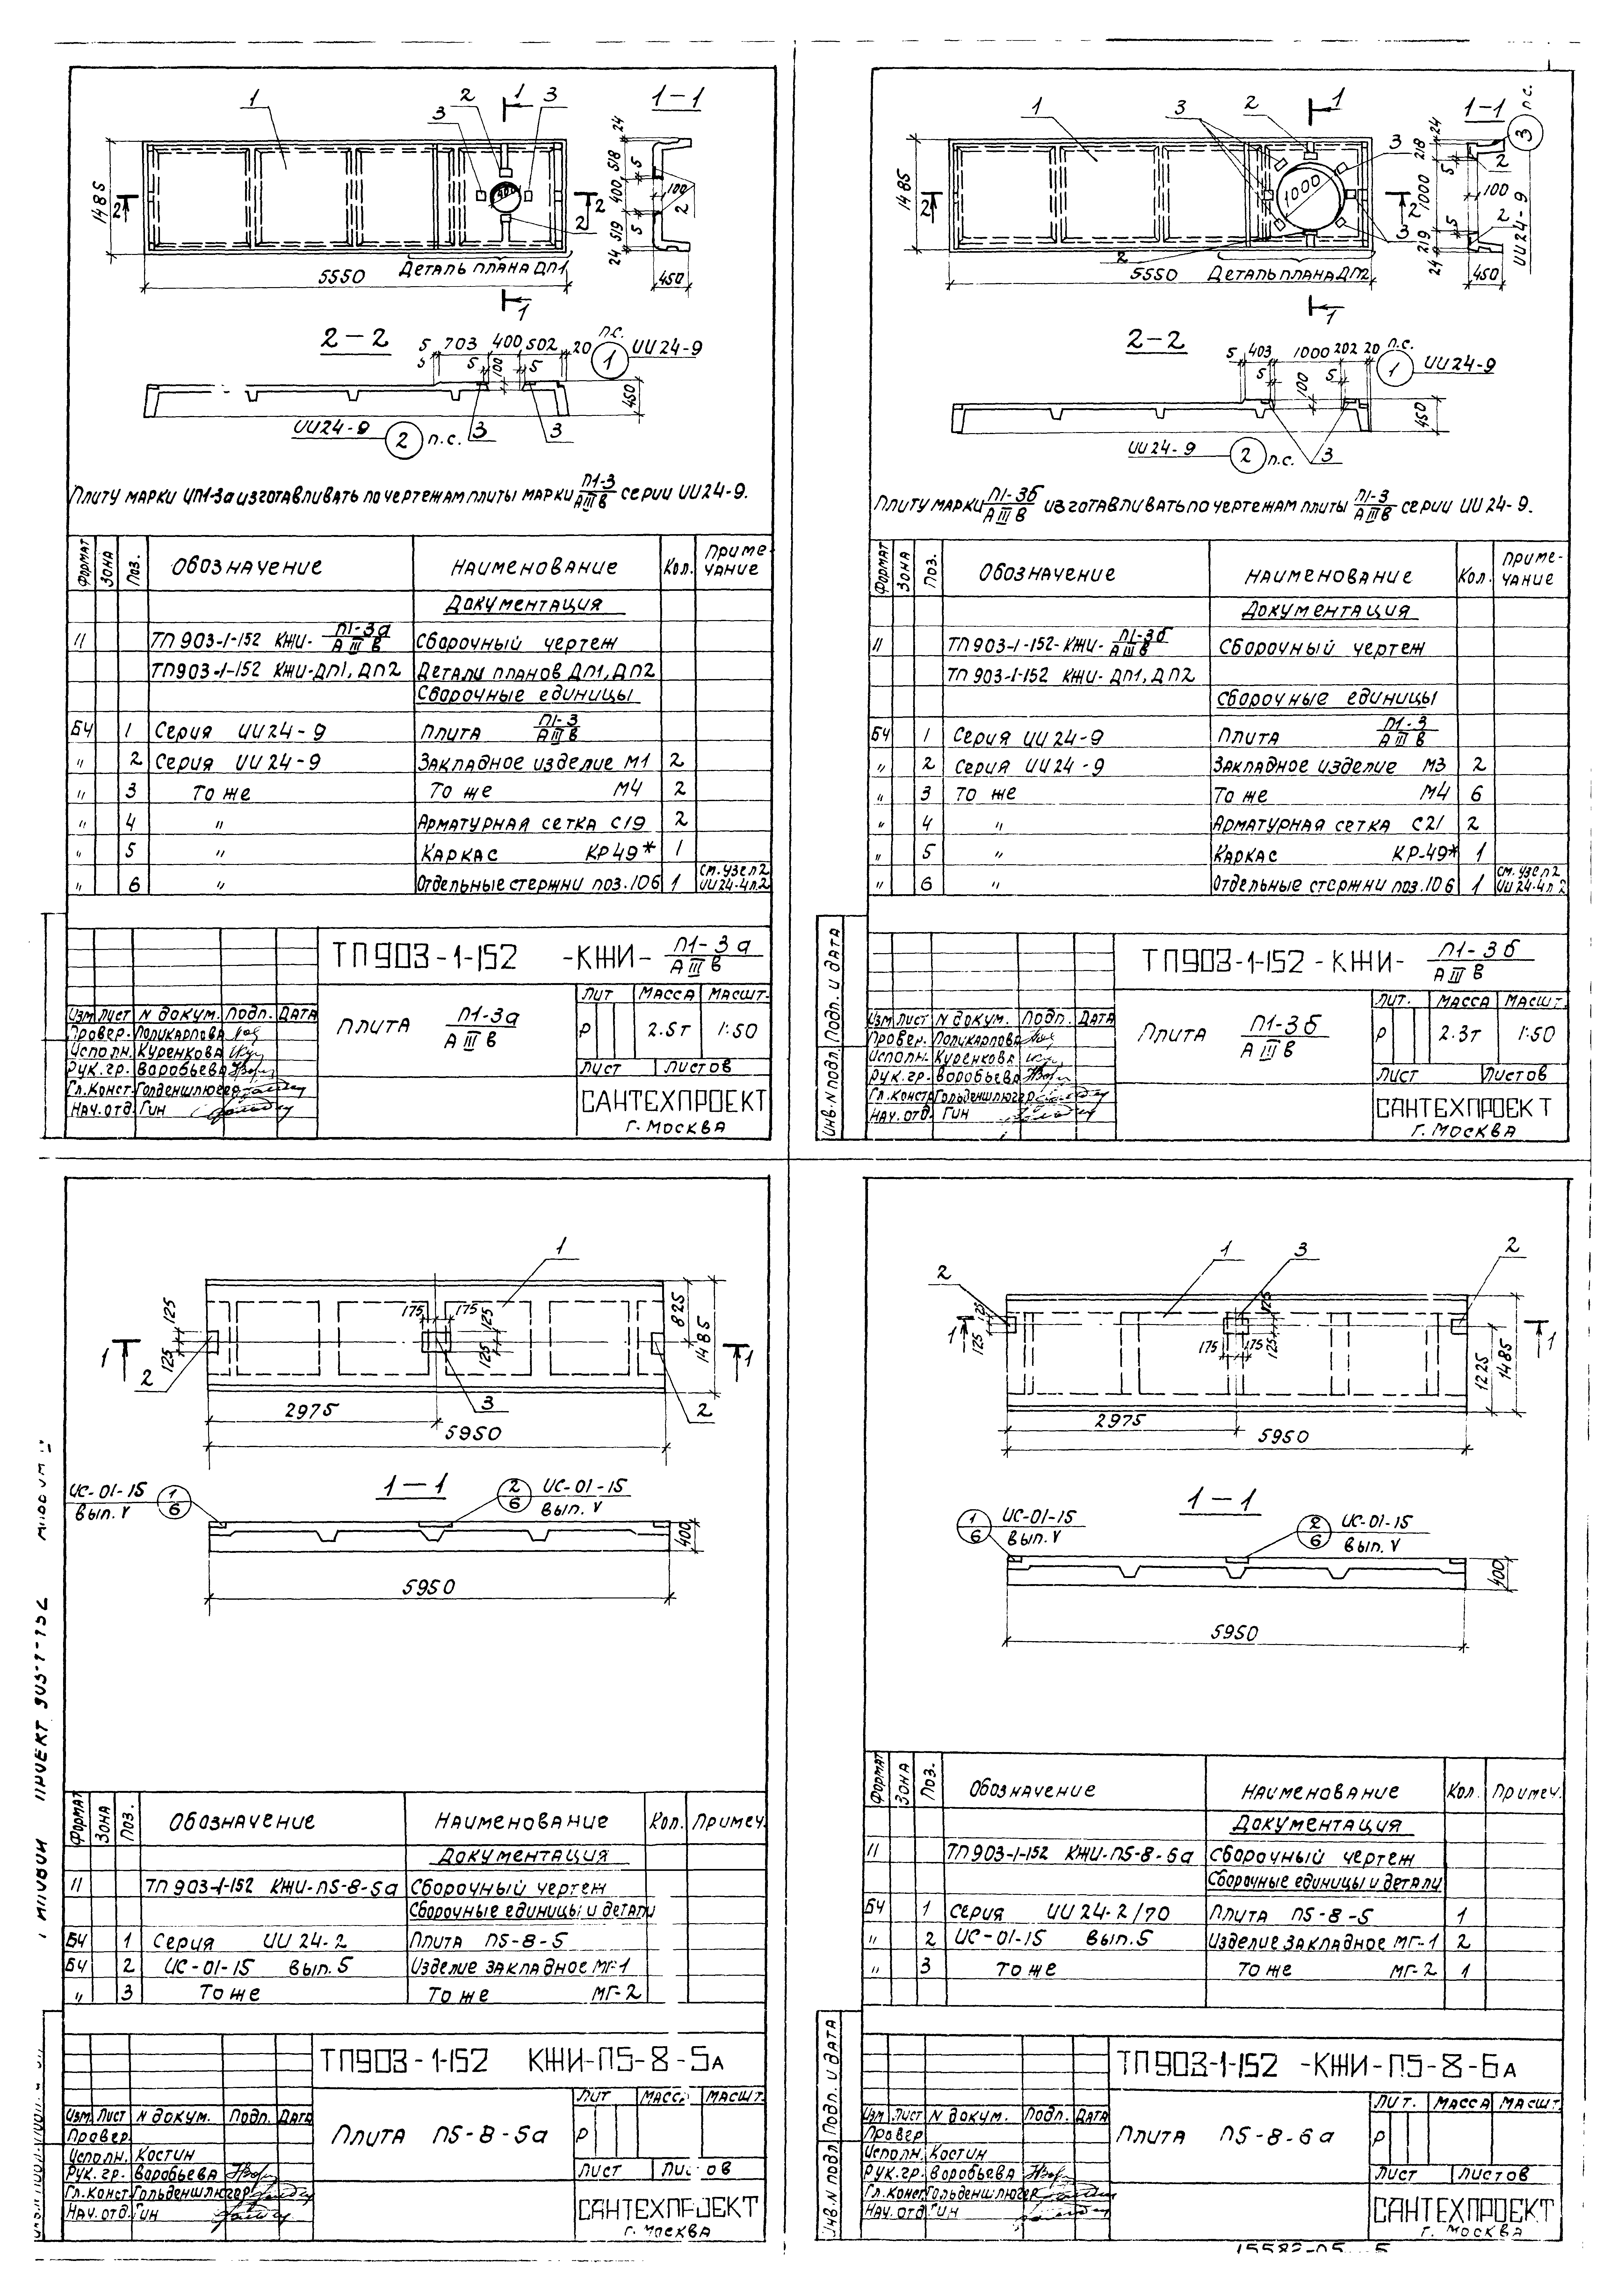 1
2
1
3
1-1
3
1485
2
2
2
24
518
400
519
24
5
5
100
2
450
5550
Деталь плана ДП1
1
2-2
5
703
400
502
20
п.с.
1
ИИ24-9
5
5
100
5
450
ИИ24-9
2
п.с.
3
3
Плиту марки ИП1-3а изготавливать по чертежам плиты марки П1-3/АIIIв серии ИИ24-9.
Формат Зона Поз. Обозначение Наименование Кол. Приме-чание
Документация
11 ТП903-1-152 КЖИ- П1-3а/АIIIв Сборочный чертеж
ТП903-1-152 КЖИ-ДП1, ДП2 Детали планов ДП1, ДП2
Сборочные единицы
БЧ 1 Серия ИИ24-9 Плита П1-3/АIIIв
" 2 Серия ИИ24-9 Закладное изделие М1 2
" 3 То же То же М4 2
" 4 " Арматурная сетка С19 2
" 5 " Каркас КР49* 1
" 6 " Отдельные стержни поз.106 1 См. узел 2 ИИ24-4л.2
ТП903-1-152 -КЖИ- П1-3а/АIIIв
Плита П1-3а/АIIIв
Лит Масса Масшт.
Р 2.5т 1:50
Лист Листов
Изм Лист N докум. Подп. Дата
Провер. Поликарпова
Исполн. Куренкова
Рук.гр. Воробьева
Гл.Конст. Гольденшлюгер
Нач.отд. Гин
САНТЕХПРОЕКТ
г. Москва
1
3
2
1
3
1-1
3
п.с.
ИИ24-9
1485
2
1000
2
3
24
218
1000
219
24
5
5
2
100
2
450
2
5550
Деталь плана ДП2
1
2-2
5
403
1000
202
20
п.с.
1
ИИ24-9
5
100
5
450
ИИ24-9
2
п.с.
3
Плиту марки П1-3б/АIIIв изготавливать по чертежам плиты П1-3/АIIIв серии ИИ24-9.
Формат Зона Поз. Обозначение Наименование Кол. Приме-чание
Документация
11 ТП903-1-152-КЖИ- П1-3б/АIIIв Сборочный чертеж
ТП903-1-152 КЖИ- ДП1, ДП2
Сборочные единицы
БЧ 1 Серия ИИ24-9 Плита П1-3/АIIIв
" 2 Серия ИИ24-9 Закладное изделие М3 2
" 3 То же То же М4 6
" 4 " Арматурная сетка С21 2
" 5 " Каркас КР-49* 1
" 6 " Отдельные стержни поз.106 1 См. узел 2 ИИ24-4л 2
ТП903-1-152-КЖИ- П1-3б/АIIIв
Плита П1-3б/АIIIв
Лит. Масса Масшт.
Р 2.3т 1:50
Лист Листов
Изм Лист N докум. Подп. Дата
Провен. Поликарпова
Исполн. Куренкова
Рук.гр. Воробьева
Гл.конст Гольденшлюгер
Нач.отд. Гин
САНТЕХПРОЕКТ
г. Москва
Инв.N подл. Подп. и дата
1
125
125
175
175
125
125
825
1485
1
1
2
3
2
2975
5950
ИС-01-15
вып. V
1/6
1-1
2/6
ИС-01-15
вып. V
400
5950
Формат Зона Поз. Обозначение Наименование Кол. Примеч.
Документация
11 ТП903-1-152 КЖИ-П5-8-5а Сборочный чертеж
Сборочные единицы и детали
БЧ 1 Серия ИИ 24-2 Плита П5-8-5
БЧ 2 ИС-01-15 вып. 5 Изделие закладное МГ-1
" 3 То же То же МГ-2
ТП903-1-152 КЖИ-П5-8-5а
Плита П5-8-5а
Лит Масса Масшт.
Р
Лист
Изм Лист N докум. Подп. Дата
Провер
Исполн. Костин
Рук.гр. Воробьева
Гл.конст Гольденшлюгер
Нач.отд. Гин
САНТЕХПРОЕКТ
г. Москва
проект 903-1-152
1
3
2
2
125
125
125
125
175
175
1
1
1225
1485
2975
5950
1/6
ИС-01-15
вып. V
1-1
2/6
ИС-01-15
вып. V
400
5950
Формат Зона Поз. Обозначение Наименование Кол. Примеч.
Документация
11 ТП903-1-152 КЖИ-П5-8-6а Сборочный чертеж
Сборочные единицы и детали
БЧ 1 Серия ИИ 24-2/70 Плита П5-8-5 1
" 2 ИС-01-15 вып.5 Изделие закладное МГ-1 2
" 3 То же То же МГ-2 1
ТП903-1-152 -КЖИ-П5-8-6а
Плита П5-8-6а
Лит. Масса Масшт.
Р
Лист Листов
Изм Лист N докум. Подп. Дата
Провер
Исполн. Костин
Рук.гр. Воробьева
Гл.конст. Гольденшлюгер
Нач.отд. Гин
САНТЕХПРОЕКТ
г. Москва
Инв.N подл. Подп. и дата
15582-05 5